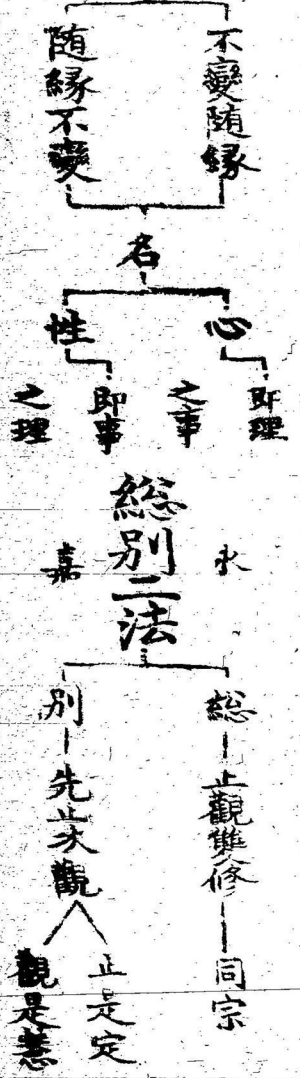 不變随縁
随縁不變
名
心
即理
之事
性
即事
之理
永
嘉
総别二法
総
止觀雙修
同宗
别
先止次觀
止是定
觀是慧